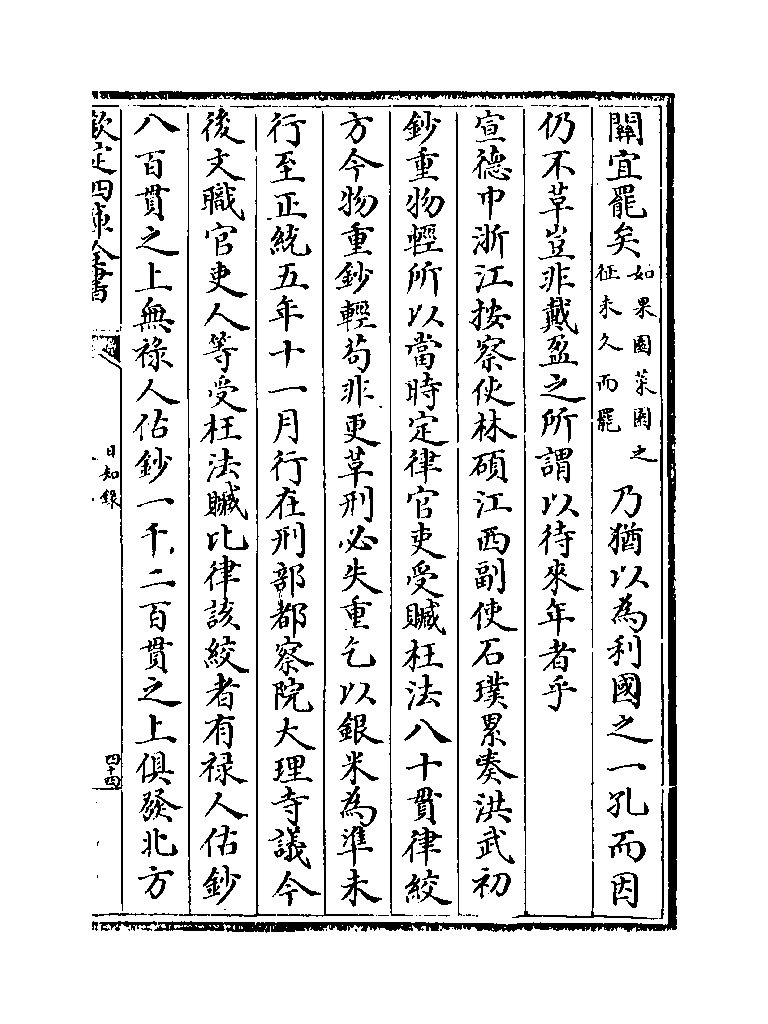 關宜罷矣
如果園菜園之
征未久而罷
乃猶以為利國之一孔而因
仍不革豈非戴盈之所謂以待來年者乎
宣德中浙江按察使林碩江西副使石璞累奏洪武初
鈔重物輕所以當時定律官吏受贓枉法八十貫律絞
方今物重鈔輕苟非更革刑必失重乞以銀米為準未
行至正統五年十一月行在刑部都察院大理寺議今
後文職官吏人等受枉法贓比律該絞者有祿人估鈔
八百貫之上無祿人估鈔一千二百貫之上俱發北方
欽定四庫全書
日知錄
四十四